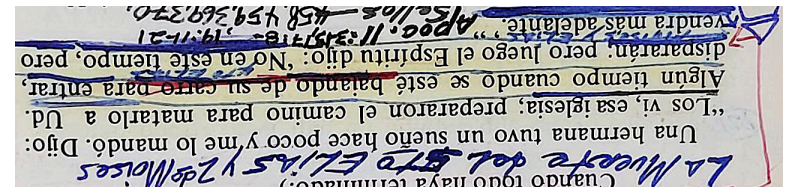 Cuando todo haya terminado.)
La Muerte del 5TO ELIAS y 2do Moises
Una hermana tuvo un sueño hace poco y me lo mandó. Dijo:
“Los vi, esa iglesia; prepararon el camino para matarlo a Ud.
Algún tiempo cuando se esté bajando de su carro para entrar,
dispararán; pero luego el Espíritu dijo: ‘No en este tiempo, pero
vendrá más adelante.’”
Apoc. 11: 19:11-21
Sellos — 458, 459, 369, 370.